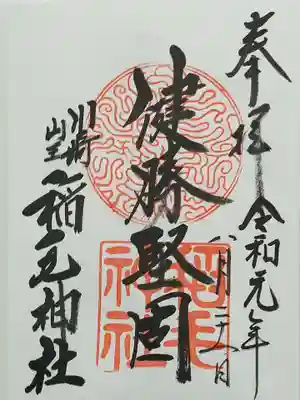 奉拝 令和元年
八月 日
健勝堅固
川崎
山王
稲毛神社
稲毛
神社